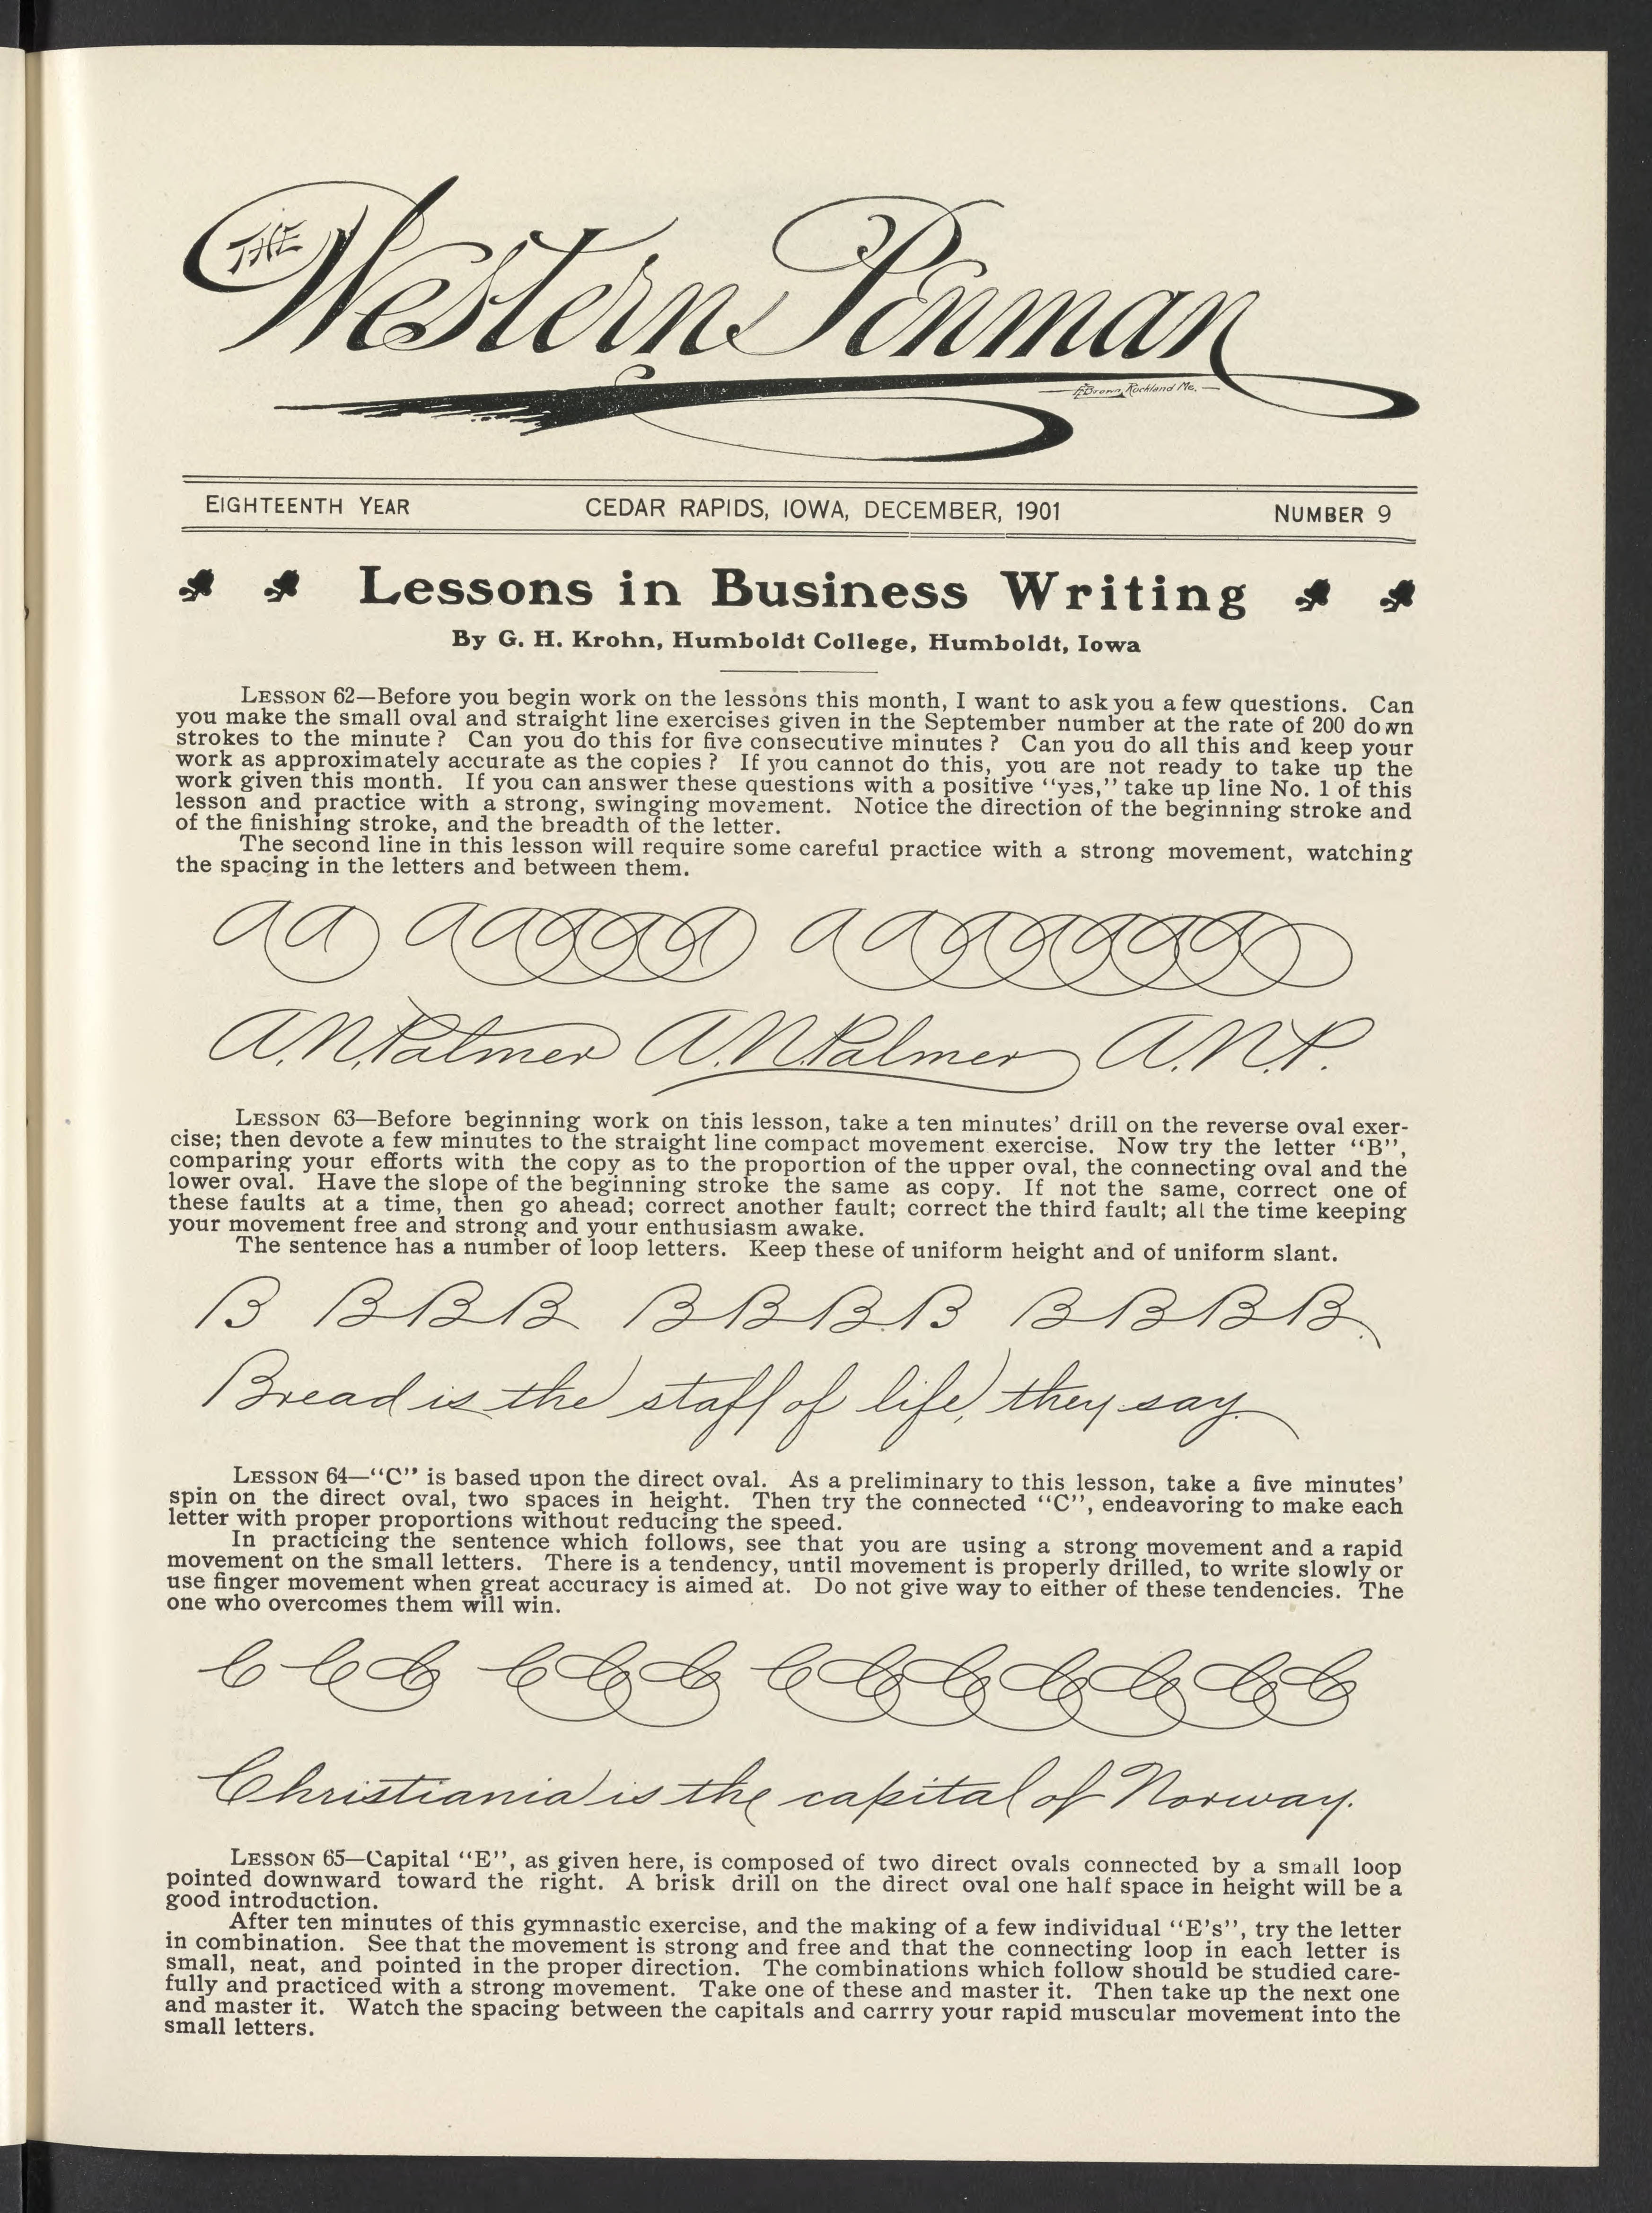 THE
Western Penman
E.Brown, Rockland Me.
EIGHTEENTH YEAR CEDAR RAPIDS, IOWA, DECEMBER, 1901 NUMBER 9
Lessons in Business Writing
By G. H. Krohn, Humboldt College, Humboldt, Iowa
LESSON 62—Before you begin work on the lessons this month, I want to ask you a few questions. Can
you make the small oval and straight line exercises given in the September number at the rate of 200 down
strokes to the minute? Can you do this for five consecutive minutes? Can you do all this and keep your
work as approximately accurate as the copies? If you cannot do this, you are not ready to take up the
work given this month. If you can answer these questions with a positive "yes," take up line No. 1 of this
lesson and practice with a strong, swinging movement. Notice the direction of the beginning stroke and
of the finishing stroke, and the breadth of the letter.
The second line in this lesson will require some careful practice with a strong movement, watching
the spacing in the letters and between them.
A A A A A A A A A A A A A A
A.N.Palmer A.N.Palmer A.N.P.
LESSON 63—Before beginning work on this lesson, take a ten minutes' drill on the reverse oval exer-
cise; then devote a few minutes to the straight line compact movement exercise. Now try the letter "B",
comparing your efforts with the copy as to the proportion of the upper oval, the connecting oval and the
lower oval. Have the slope of the beginning stroke the same as copy. If not the same, correct one of
these faults at a time, then go ahead; correct another fault; correct the third fault; all the time keeping
your movement free and strong and your enthusiasm awake.
The sentence has a number of loop letters. Keep these of uniform height and of uniform slant.
B B B B B B B B B B B B
Bread is the staff of life, they say.
LESSON 64—"C" is based upon the direct oval. As a preliminary to this lesson, take a five minutes'
spin on the direct oval, two spaces in height. Then try the connected "C", endeavoring to make each
letter with proper proportions without reducing the speed.
In practicing the sentence which follows, see that you are using a strong movement and a rapid
movement on the small letters. There is a tendency, until movement is properly drilled, to write slowly or
use finger movement when great accuracy is aimed at. Do not give way to either of these tendencies. The
one who overcomes them will win.
C C C C C C C C C C C C C
Christiania is the capital of Norway.
LESSON 65—Capital "E", as given here, is composed of two direct ovals connected by a small loop
pointed downward toward the right. A brisk drill on the direct oval one half space in height will be a
good introduction.
After ten minutes of this gymnastic exercise, and the making of a few individual "E's", try the letter
in combination. See that the movement is strong and free and that the connecting loop in each letter is
small, neat, and pointed in the proper direction. The combinations which follow should be studied care-
fully and practiced with a strong movement. Take one of these and master it. Then take up the next one
and master it. Watch the spacing between the capitals and carrry your rapid muscular movement into the
small letters.